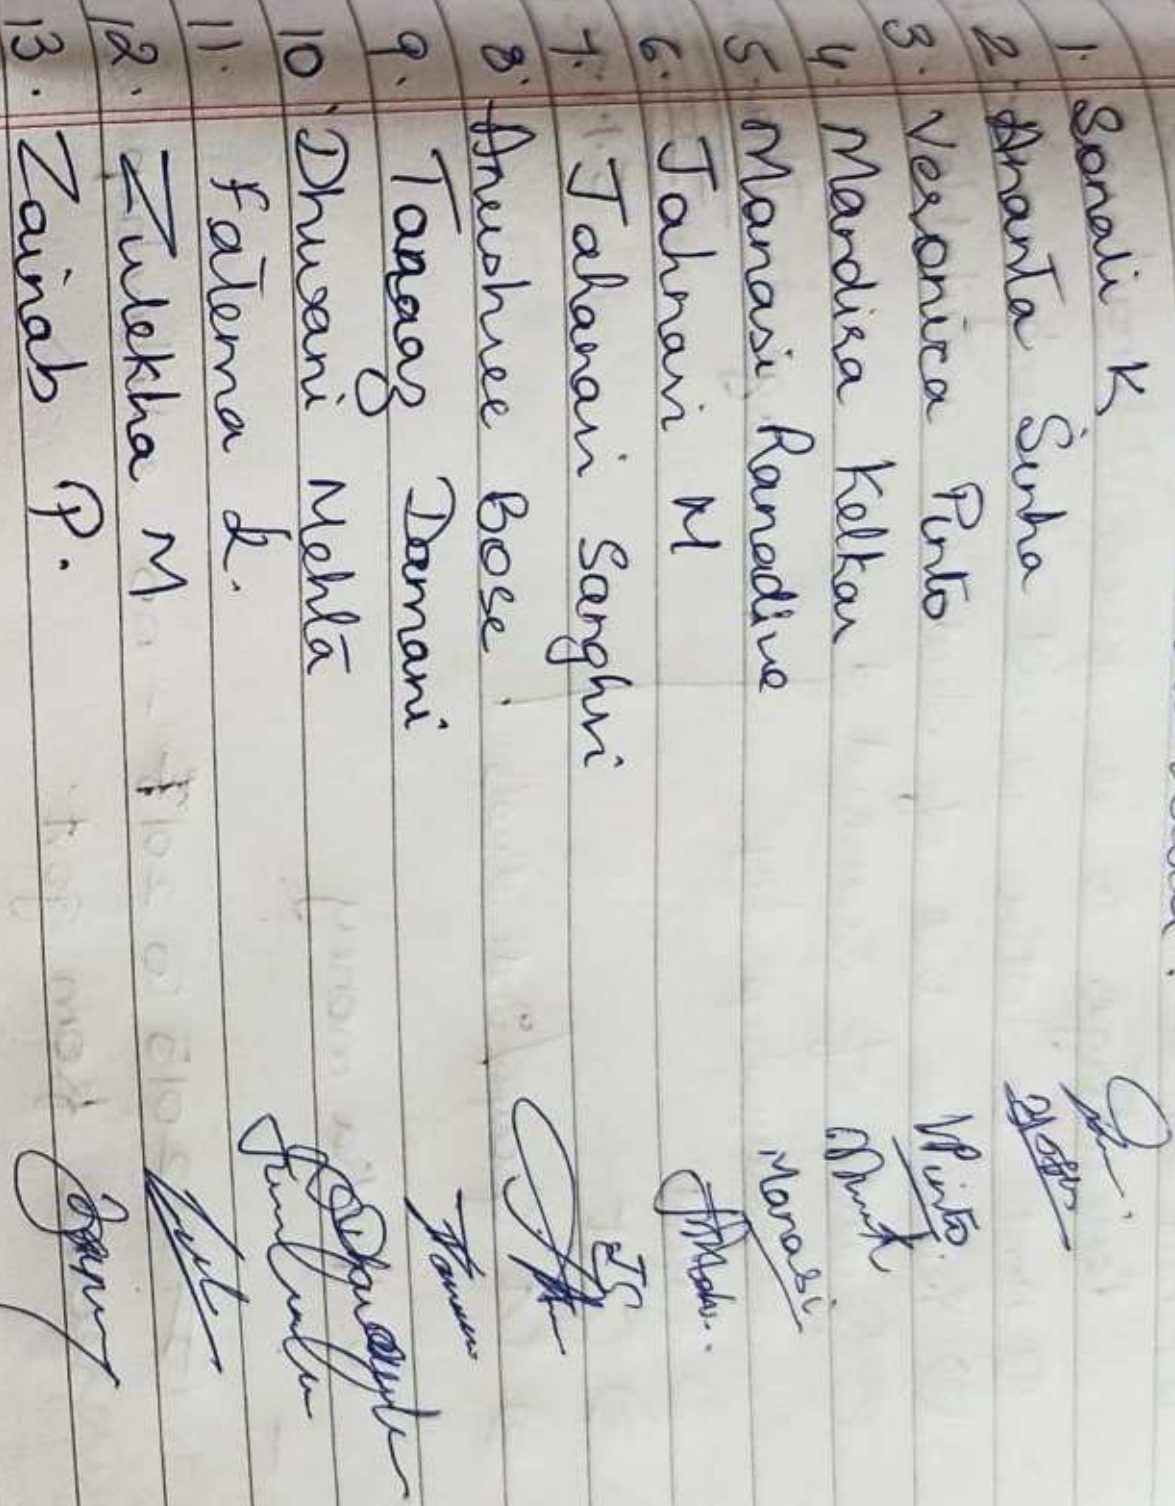 1. Sonali K
2. Ananta Sinha
3. Veronica Pinto VPinto
4. Mandira Kelkar
5. Manasi Ranadive Manasi
6. Jahnavi M
7. Jahanavi Sanghvi JS
8. Anushree Bose
9. Tanaaz Damani
10. Dhwani Mehta
11. Fatema L.
12. Zulekha M
13. Zainab P.